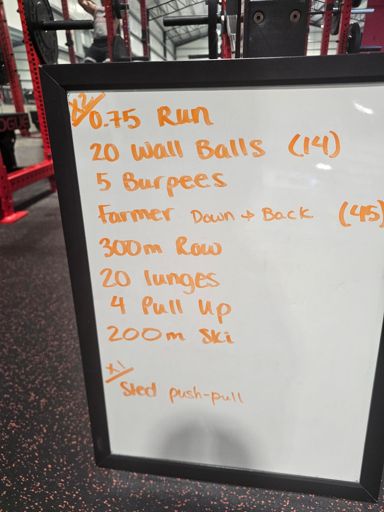 x2
0.75 Run
20 Wall Balls (14)
5 Burpees
Farmer Down + Back (45)
300m Row
20 lunges
4 Pull Up
200m Ski
x1
Sled push-pull